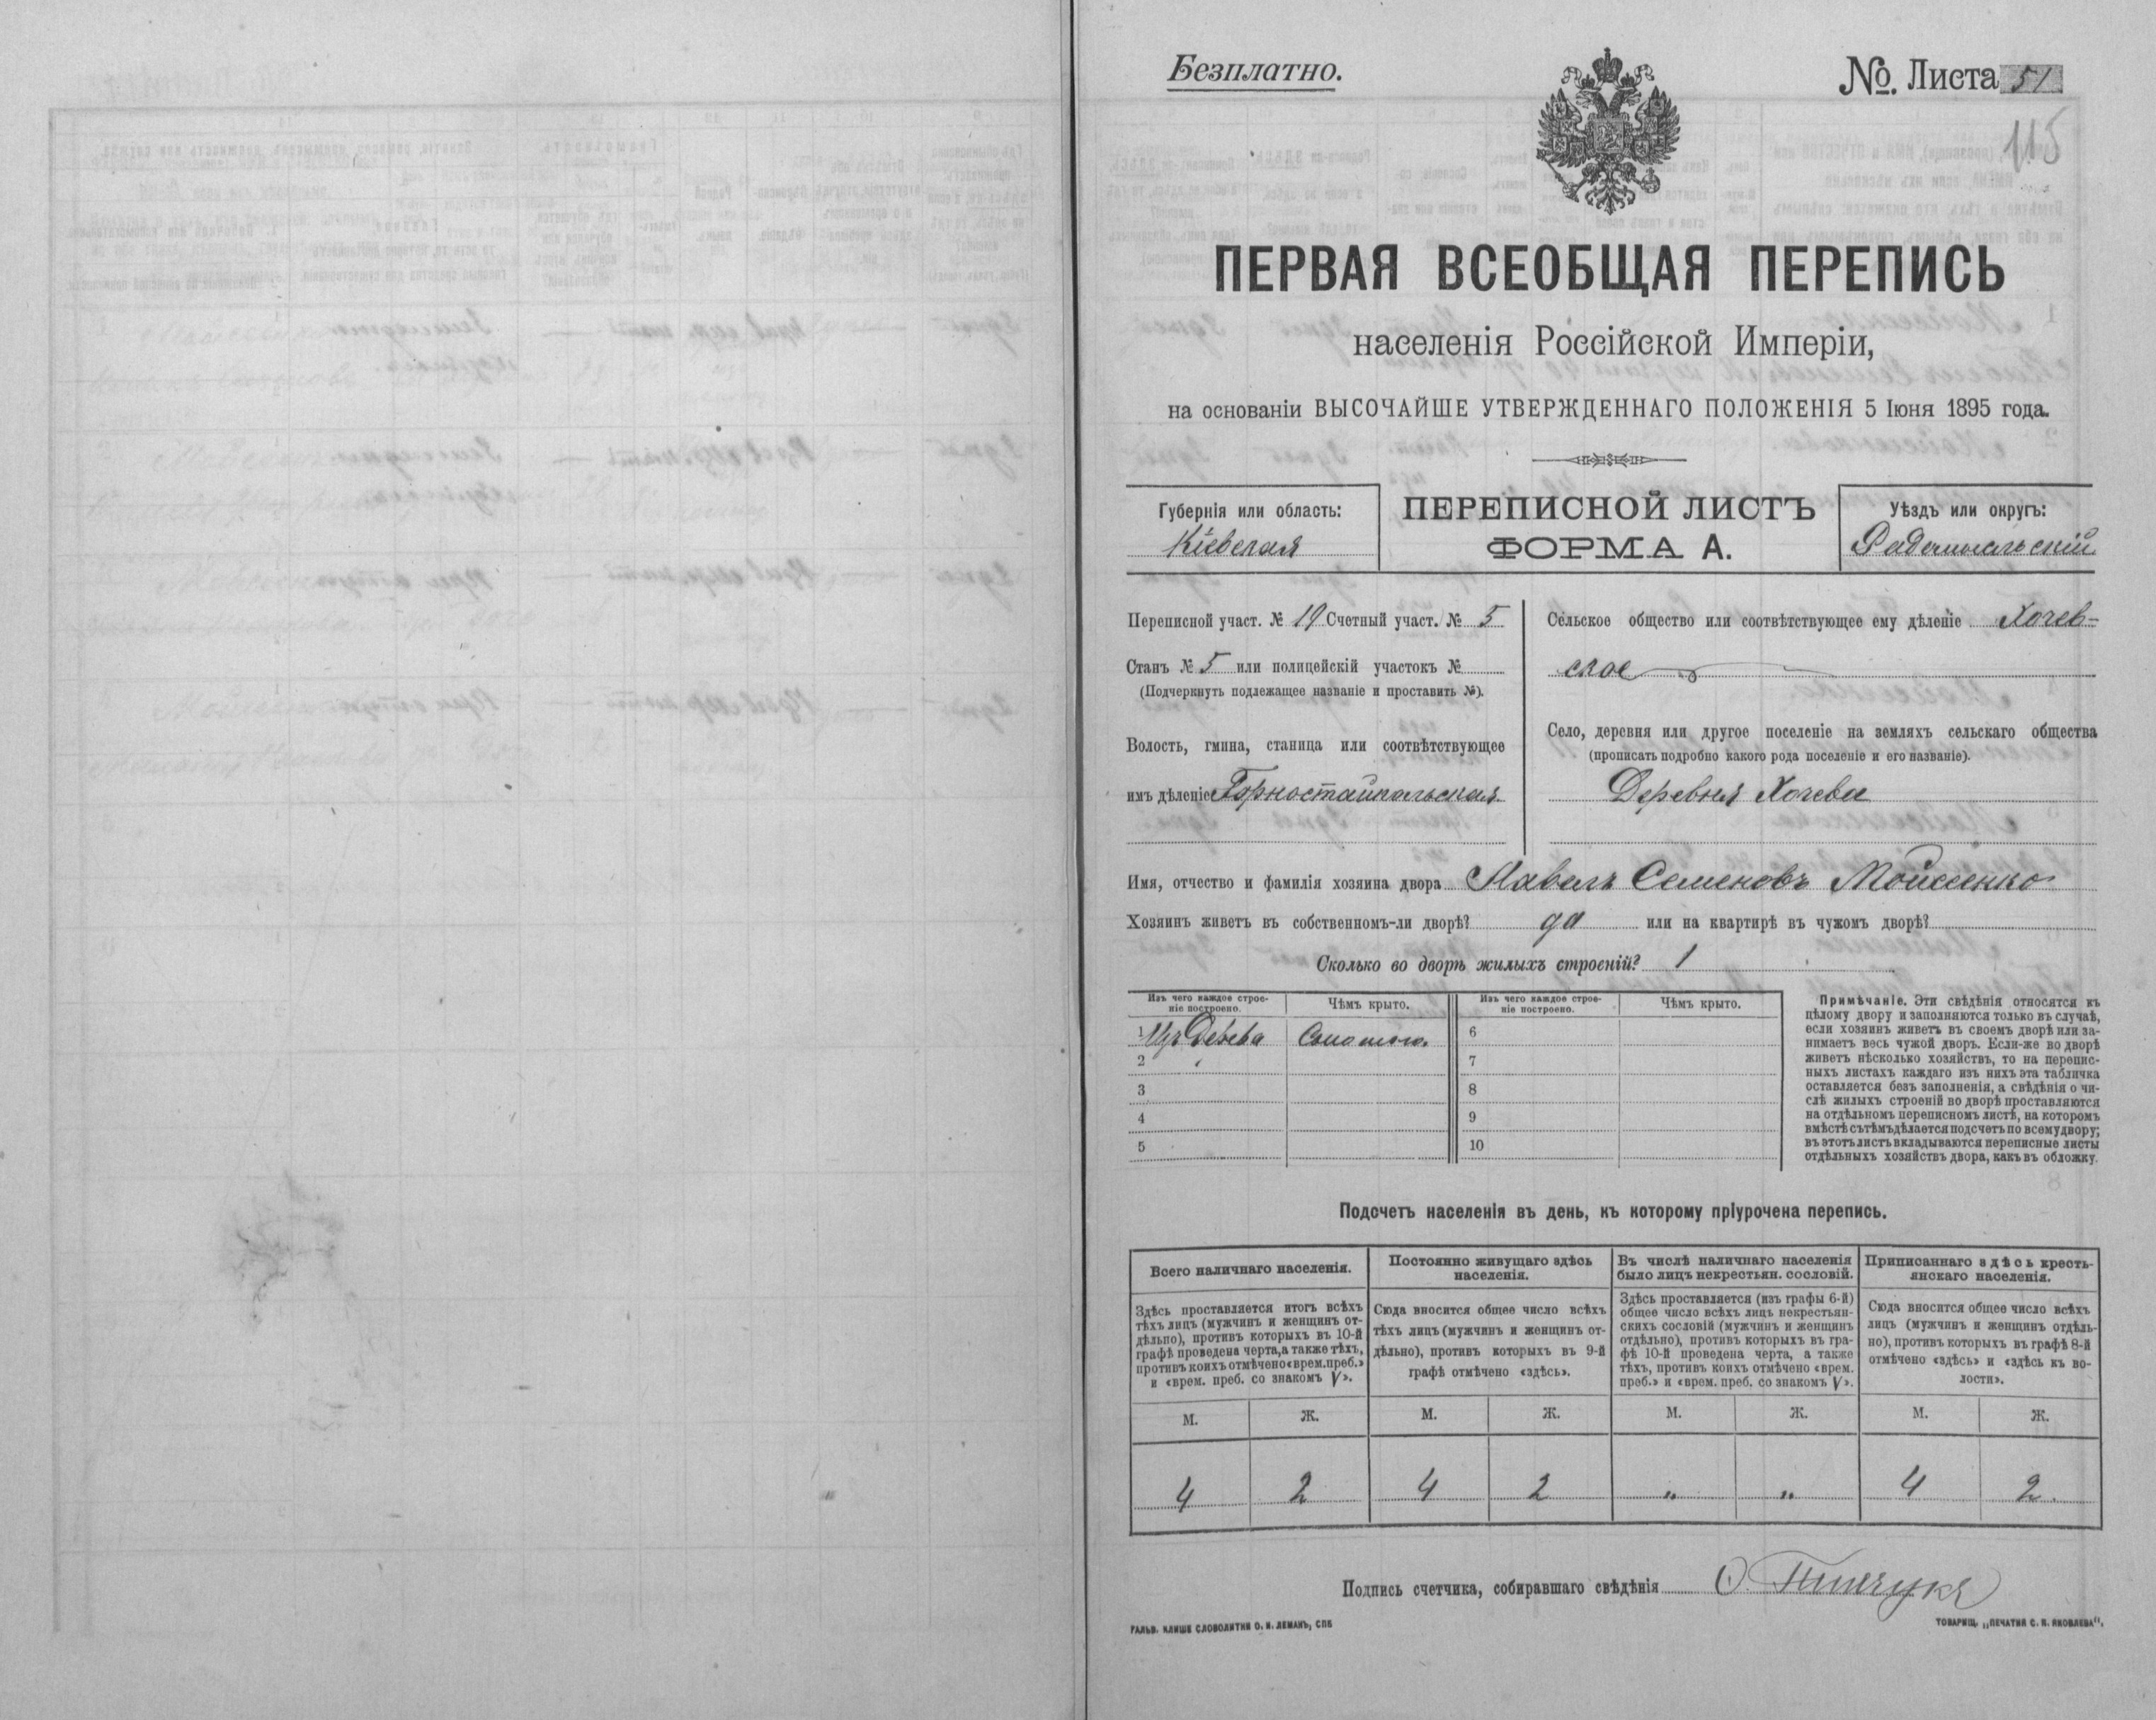 Безплатно.
№. Листа 51
115
ПЕРВАЯ ВСЕОБЩАЯ ПЕРЕПИСЬ
населенія Россійской Имперіи,
на основаніи ВЫСОЧАЙШЕ УТВЕРЖДЕННАГО ПОЛОЖЕНІЯ 5 Іюня 1895 года.
Губернія или область:
Кіевская
ПЕРЕПИСНОЙ ЛИСТЪ
ФОРМА А.
Уѣздъ или округъ:
Радомысльскій
Переписной участ. № 19 Счетный участ. № 5
Станъ № 5 или полицейскій участокъ №
(Подчеркнуть подлежащее названіе и проставить №).
Волость, гмина, станица или соотвѣтствующее
имъ дѣленіе Горностайпольская
Сельское общество или соотвѣтствующее ему дѣленіе Хочев-
ское
Село, деревня или другое поселеніе на земляхъ сельскаго общества
(прописать подробно какого рода поселеніе и его названіе).
Деревня Хочева
Имя, отчество и фамилія хозяина двора Павелъ Семеновъ Мойсеенко
Хозяинъ живетъ въ собственномъ-ли дворѣ? да или на квартирѣ въ чужомъ дворѣ?
Сколько во дворѣ жилыхъ строеній? 1
Изъ чего каждое строе-
ніе построено.
Чѣмъ крыто.
Изъ чего каждое строе-
ніе построено.
Чѣмъ крыто.
1 Изъ Дерева Соломою. 6
2 7
3 8
4 9
5 10
Примѣчаніе. Эти свѣдѣнія относятся къ
цѣлому двору и заполняются только въ случаѣ,
если хозяинъ живетъ въ своемъ дворѣ или за-
нимаетъ весь чужой дворъ. Если-же во дворѣ
живетъ нѣсколько хозяйствъ, то на перепис-
ныхъ листахъ каждаго изъ нихъ эта табличка
оставляется безъ заполненія, а свѣдѣнія о чи-
слѣ жилыхъ строеній во дворѣ проставляются
на отдѣльномъ переписномъ листѣ, на которомъ
вмѣстѣ съ тѣмъ дѣлается подсчетъ по всему двору;
въ этотъ листъ вкладываются переписные листы
отдѣльныхъ хозяйствъ двора, какъ въ обложку.
Подсчетъ населенія въ день, къ которому пріурочена перепись.
Всего наличнаго населенія.
Здѣсь проставляется итогъ всѣхъ
тѣхъ лицъ (мужчинъ и женщинъ от-
дѣльно), противъ которыхъ въ 10-й
графѣ проведена черта, а также тѣхъ,
противъ коихъ отмѣчено «врем. преб.»
и «врем. преб. со знакомъ V».
Постоянно живущаго здѣсь
населенія.
Сюда вносится общее число всѣхъ
тѣхъ лицъ (мужчинъ и женщинъ от-
дѣльно), противъ которыхъ въ 9-й
графѣ отмѣчено «здѣсь».
Въ числѣ наличнаго населенія
было лицъ некрестьян. сословій.
Здѣсь проставляется (изъ графы 6-й)
общее число всѣхъ лицъ некрестьян-
скихъ сословій (мужчинъ и женщинъ
отдѣльно), противъ которыхъ въ гра-
фѣ 10-й проведена черта, а также
тѣхъ, противъ коихъ отмѣчено «врем.
преб.» и «врем. преб. со знакомъ V».
Приписаннаго здѣсь кресть-
янскаго населенія.
Сюда вносится общее число всѣхъ
лицъ (мужчинъ и женщинъ отдѣль-
но), противъ которыхъ въ графѣ 8-й
отмѣчено «здѣсь» и «здѣсь къ во-
лости».
М. Ж. М. Ж. М. Ж. М. Ж.
4 2 4 2 „ „ 4 2.
Подпись счетчика, собиравшаго свѣдѣнія О.
ГАЛЬВ. КЛИШЕ СЛОВОЛИТНИ О. И. ЛЕМАНЪ, СПБ
ТОВАРИЩ. „ПЕЧАТНЯ С. П. ЯКОВЛЕВА".